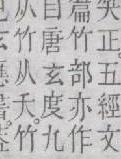 笑正。五經文
篇竹部亦作
自唐玄度九
从竹从夭。竹